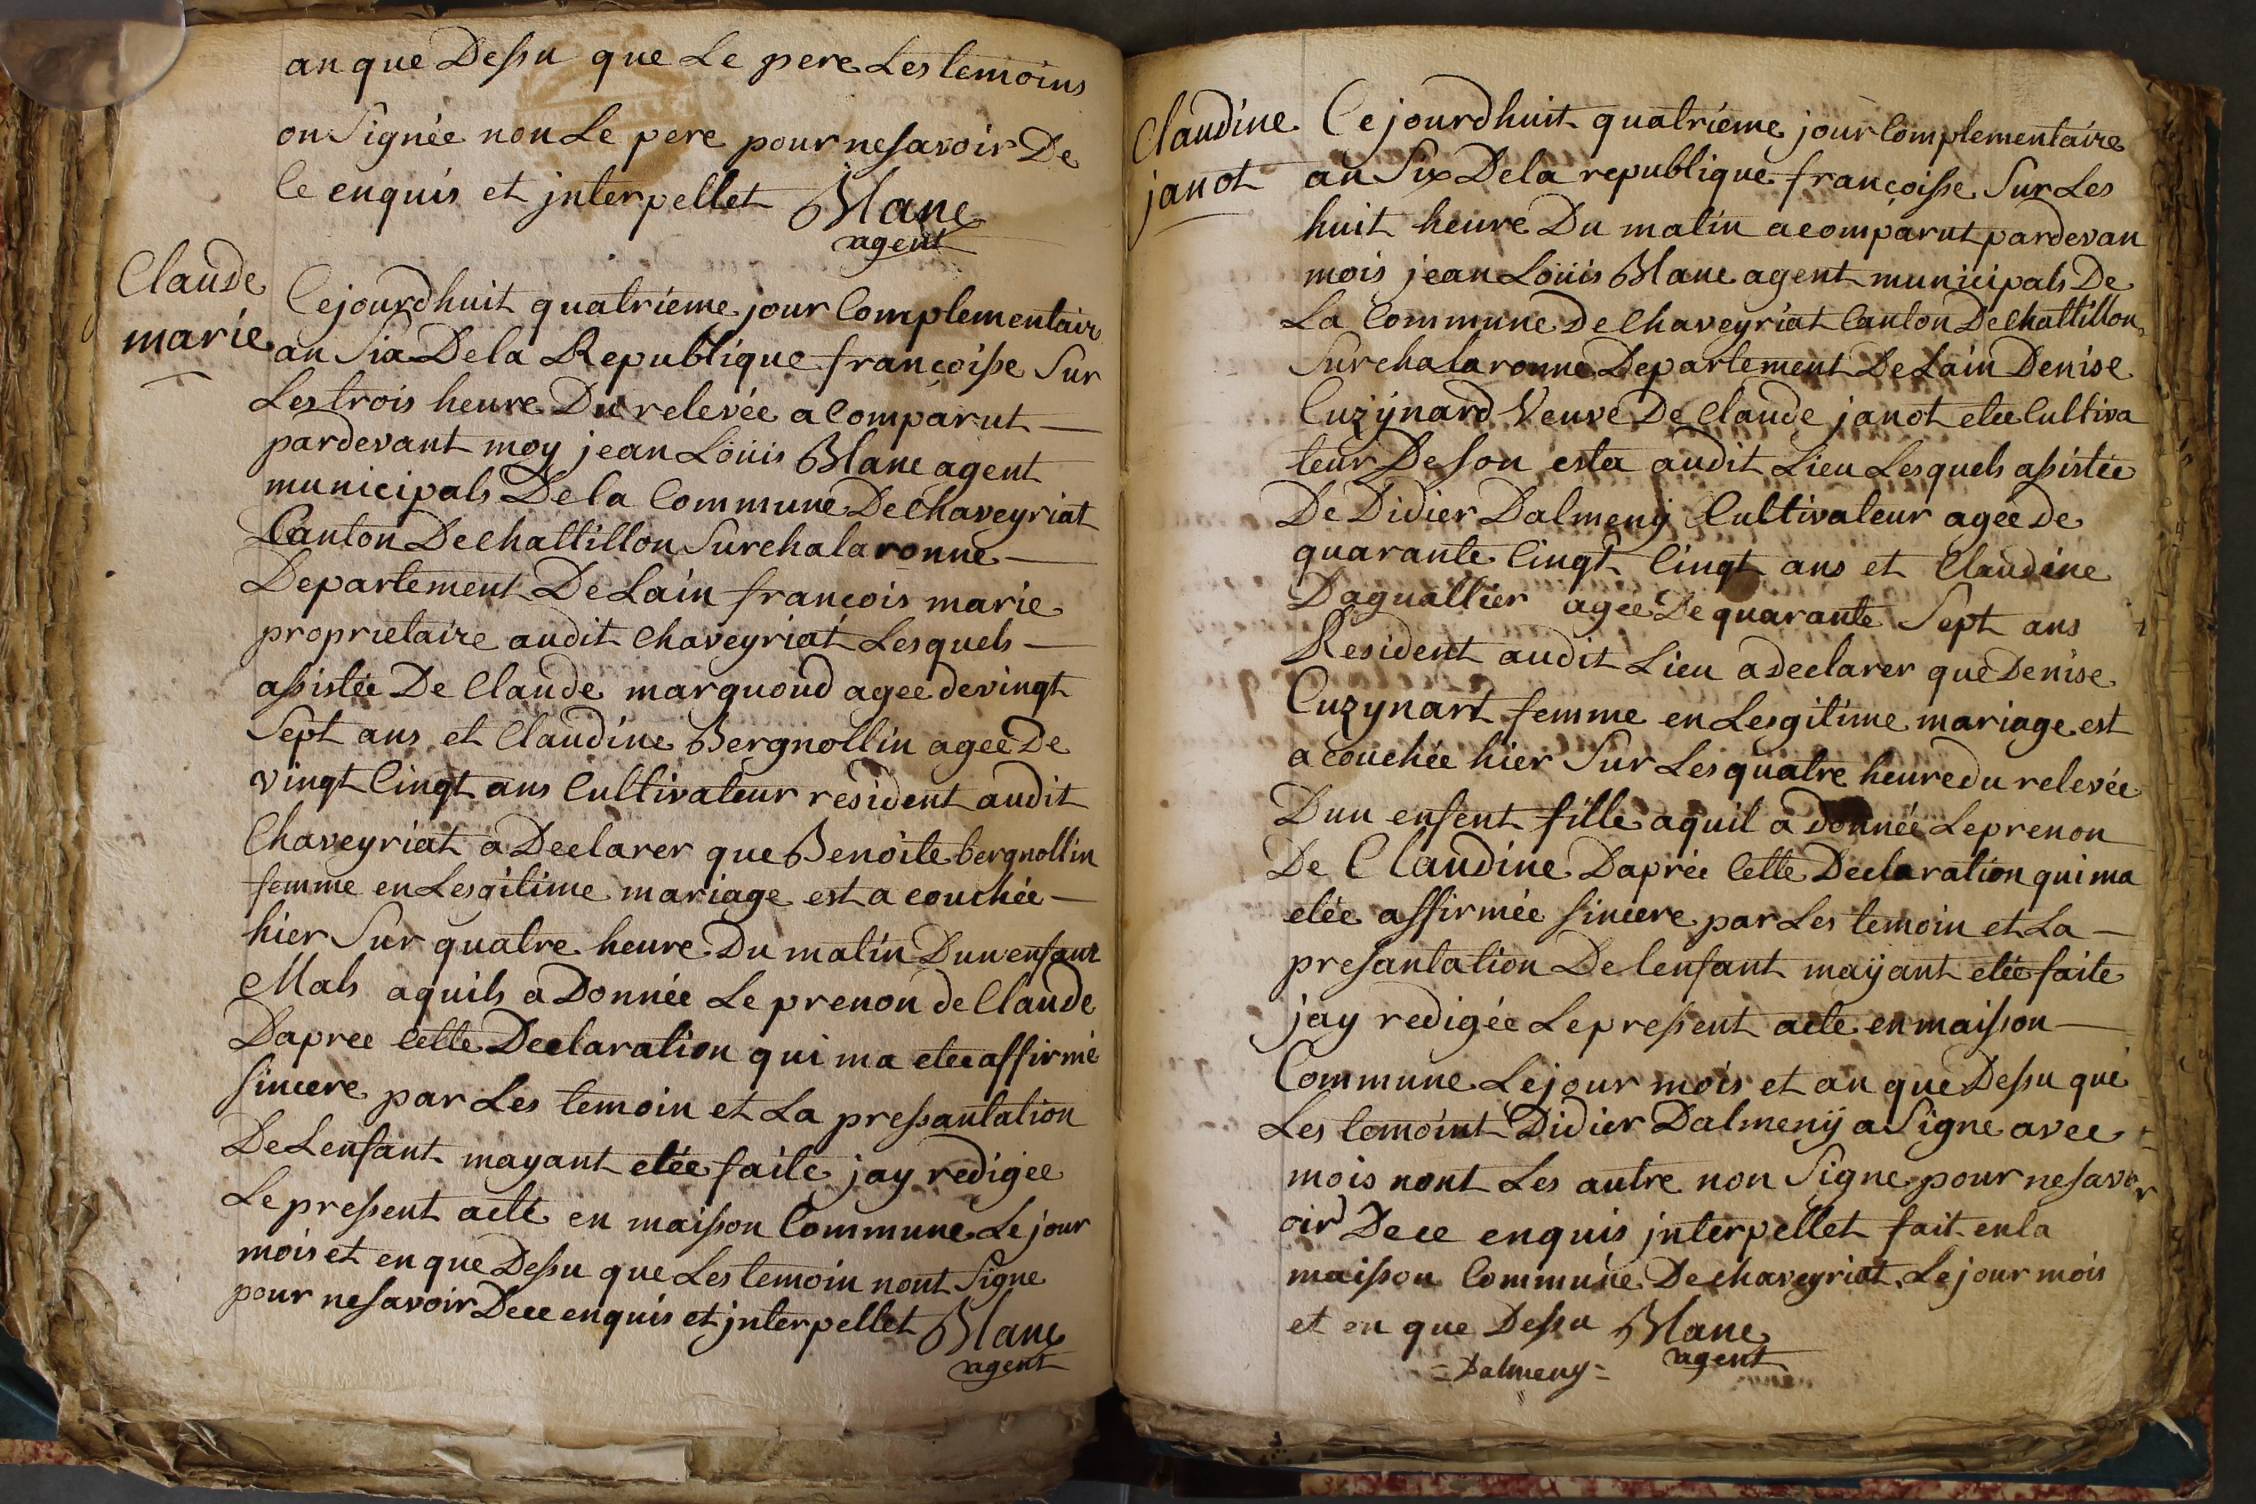 an que Dessu que Le pere Les temoins
on Signée non Le pere pour ne savoir De
Ce enquis et jnterpellet Blanc
agent
Claude
marie
Cejourdhuit quatrieme jour Complementair
an Six De la Republique françoisse Sur
Les trois heure Du relevée a Comparut
pardevant moy jean Loüis Blanc agent
municipals De la Commune De Chaveyriat
Canton De Chattillon Sur chalaronne
Departement De Lain françois marie
proprietaire audit Chaveyriat Lesquels
assistée De Claude marguoud agee de vingt
Sept ans et Claudine Bergnollin agee De
vingt Cinqt ans Cultivateur resident audit
Chaveyriat a Declarer que Benoite bergnollin
femme en Lesgitime mariage est a couchée
hier Sur quatre heure Du matin Dun enfant
Mals aquils a Donnée Le prenon de Claude
Dapree Cette Declaration qui ma etee affirmé
sincere par Les temoin et La pressantation
De Lenfant mayant etée faite jay redigée
Le pressent acte en maisson Commune Le jour
mois et en que Dessu que Les temoin nont Signe
pour ne savoir De ce enquis et jnterpellet Blanc
agent
Claudine
janot
Cejourdhuit quatriéme jour Complementaire
an Six De la republique françoisse Sur Les
huit heure Du matin a comparut pardevan
mois jean Loüis Blanc agent municipals De
La Commune De Chaveyriat Canton De Chattillon
Sur chalaronne Departement De Lain Denise
Cuzÿnard Veuve De Claude janot etee Cultiva
teur De son esta audit Lieu Lesquels assistée
De Didier Dalmenÿ Cultivateur agee de
quarante Cinqt Cinqt ans et Claudine
Daguallier agee De quarante Sept ans
Resident audit Lieu a declarer que Denise
Cuzynart femme en Lesgitime mariage est
a couchée hier Sur Les quatre heure du relevée
Dun enfent fille aquil a donnée Le prenon
De Claudine Daprée Cette Declaration qui ma
etée affirmée sincere par Les temoin et La
presantation De lenfant maÿant etée faite
jay redigée Le pressent acte en maisson
Commune Le jour mois et an que Dessu que
Les temoint Didier Dalmenÿ a Signe avec
mois nont Les autre non Signe pour ne savoir
oir De ce enquis jnterpellet fait en la
maisson Commune De chaveyriat Le jour mois
et en que Dessu Blanc
=Dalmeny= agent